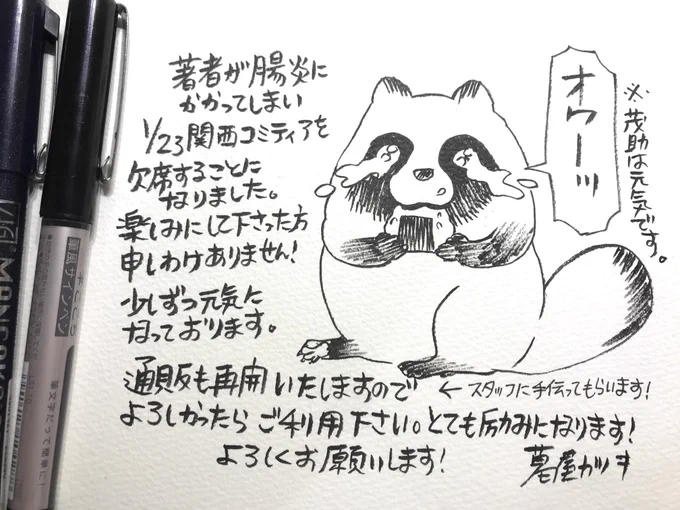 著者が腸炎に
かかってしまい
1/23関西コミティアを
欠席することに
なりました。
楽しみにして下さった方
申しわけありません!
少しずつ元気に
なっております。
オワーッ
※茂助は元気です。
通販も再開いたしますので
←スタッフに手伝ってもらいます!
よろしかったらご利用下さい。とても励みになります!
よろしくお願いします!
筆風サインペン